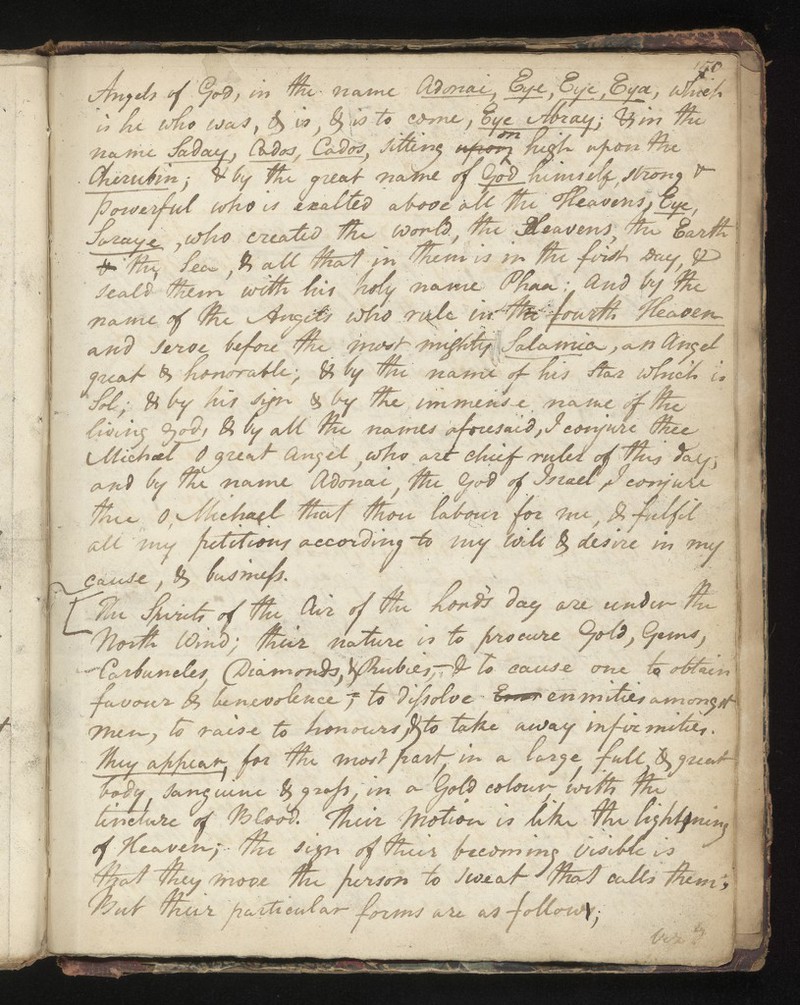 Angels of God, in the name Adonai, Eye, Eye, Eya, which
is he who was, & is, & is to come, Eye Abray; & in the
name Saday, Cados, Cados, sitting upon on high upon the
Cherubin; & by the great name of God himself, strong &
powerful who is exalted above all the Heavens, Eye,
Saraye, who created the world, the Heavens, the Earth
& the Sea, & all that in them is in the first Day, &
seald them with his holy name Phaa: And by the
name of the Angels who rule in the fourth Heaven
and serve before the most mighty Salamia, an Angel
great & honorable; & by the name of his star which is
Sol; & by his sign & by the immense name of the
living God, & by all the names aforesaid, I conjure thee
Michael O great Angel, who art chief ruler of this day;
and by the name Adonai, the God of Israel, I conjure
thee O, Michael that thou labour for me, & fulfil
all my petitions according to my will & desire in my
cause, & business.
The Spirits of the Air of the Lord's day are under the
North Wind; their nature is to procure Gold, Gems,
Carbuncles, Diamonds, & Rubies, & to cause one to obtain
favour & benevolence; to dissolve enmities amongst
men, to raise to honours, & to take away infirmities.
They appear, for the most part, in a large, full, & great
body, sanguine & gross, in a Gold colour, with the
tincture of Blood. Their Motion is like the lightning
of Heaven; the sign of their becoming visible is
that they move the person to sweat that calls them;
But their particular forms are as follows;